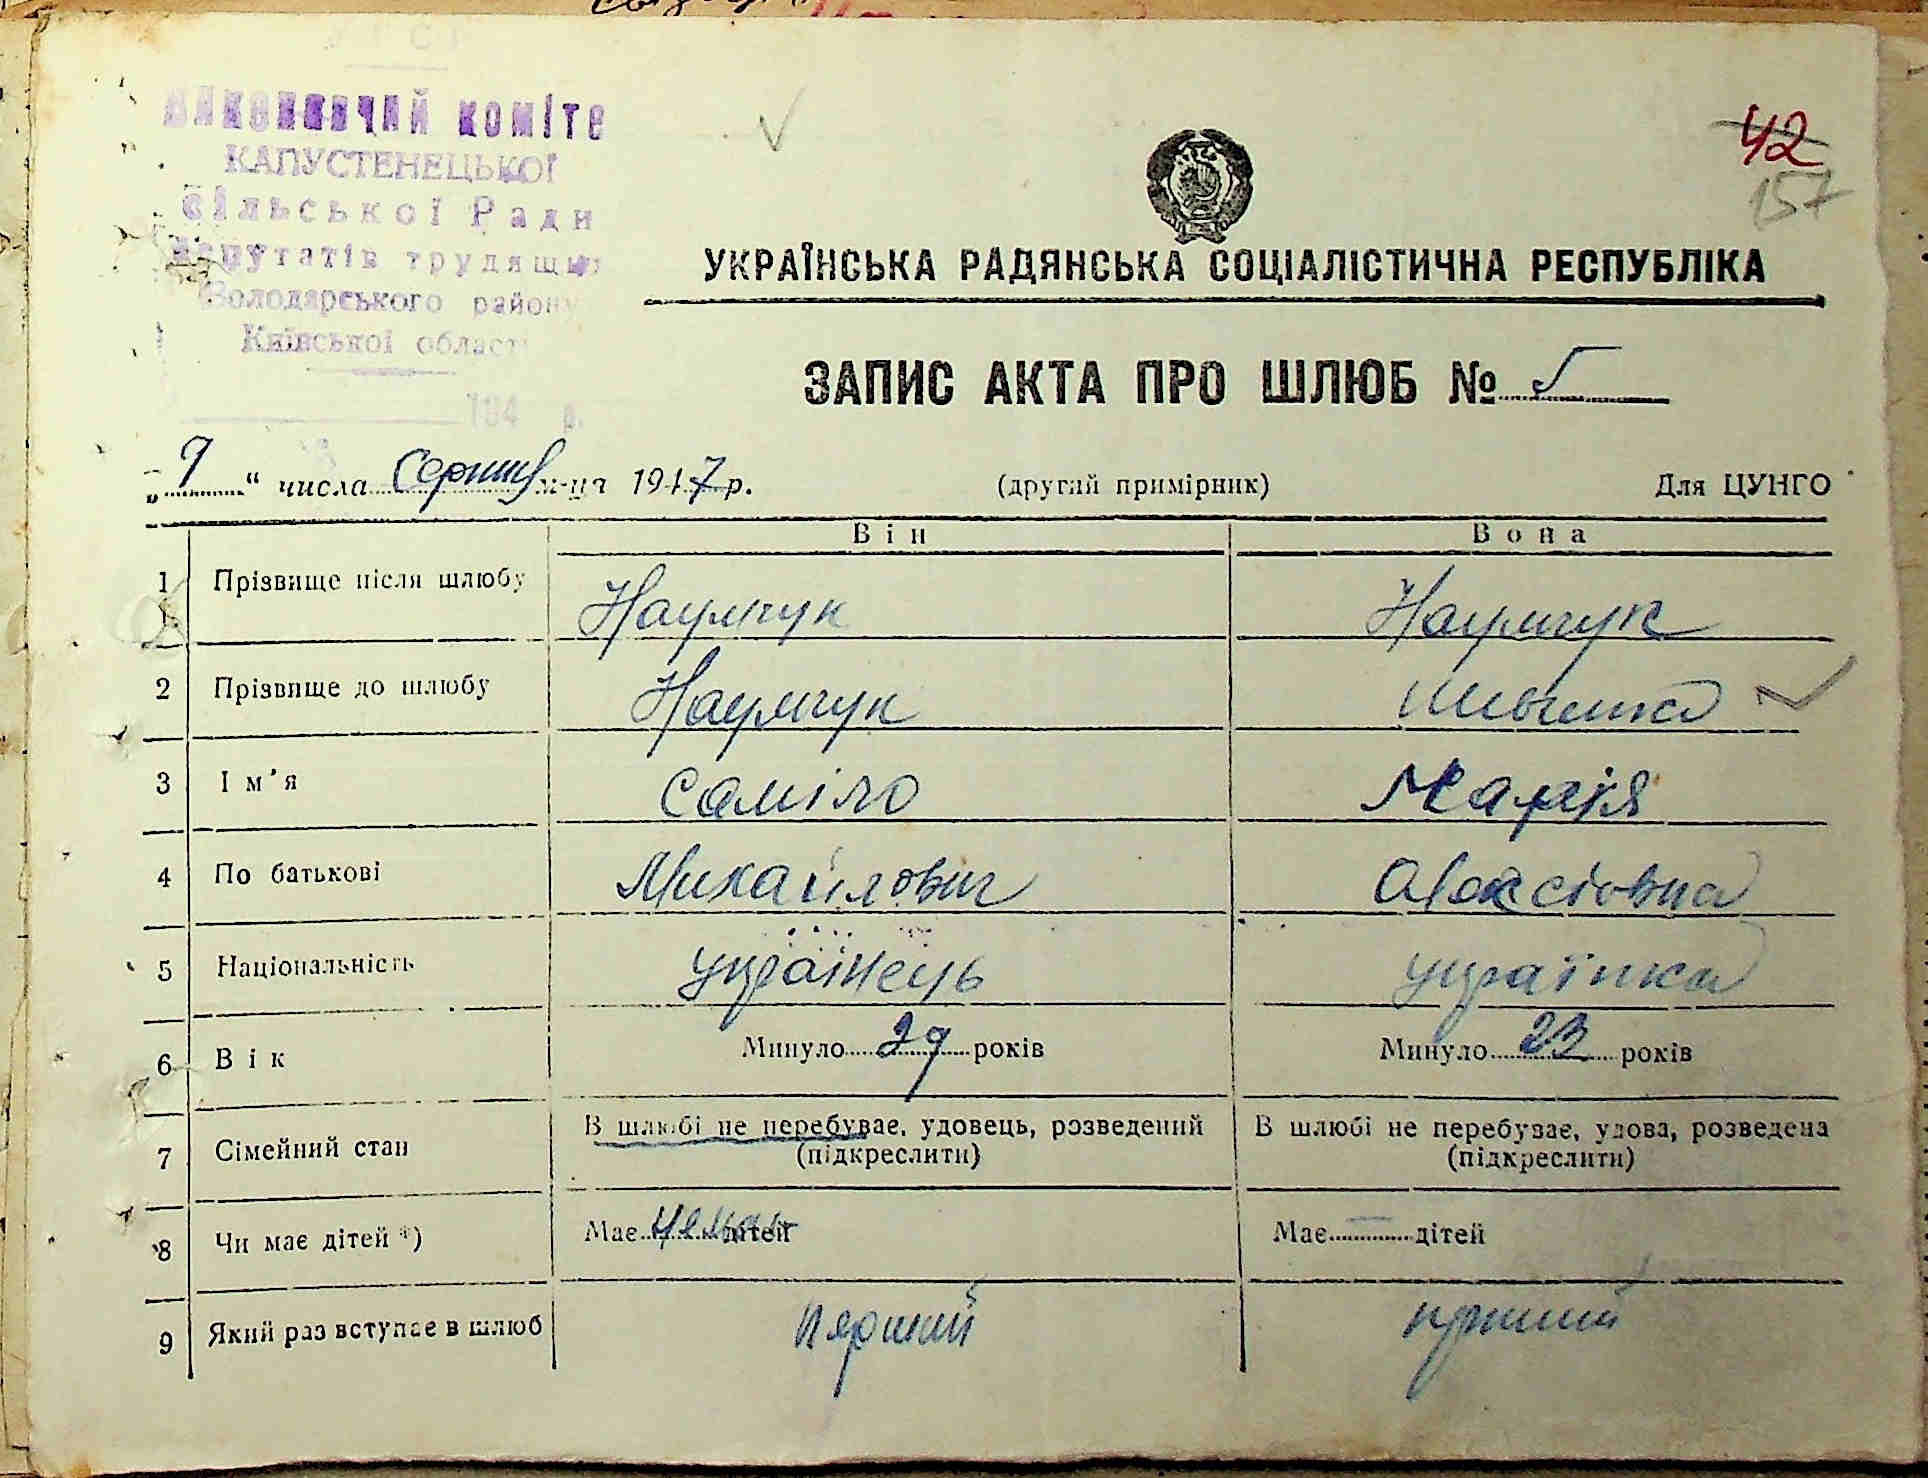 Виконавчий коміте
КАПУСТЕНЕЦЬКОЇ
Сільської Ради
депутатів трудящих
Володарського району
Київської област
194 р.
42
157
УКРАЇНСЬКА РАДЯНСЬКА СОЦІАЛІСТИЧНА РЕСПУБЛІКА
ЗАПИС АКТА ПРО ШЛЮБ № 5
„9“ числа Серпня м-ця 1947 р. (другий примірник) Для ЦУНГО
Він Вона
1 Прізвище після шлюбу Наумчук Наумчук
2 Прізвище до шлюбу Наумчук
3 Ім'я Саміло Марія
4 По батькові Михайлович Олексіовна
5 Національність українець українка
6 Вік Минуло 29 років Минуло 23 років
7 Сімейний стан В шлюбі не перебуває, удовець, розведений В шлюбі не перебуває, удова, розведена
(підкреслити) (підкреслити)
8 Чи має дітей *) Має немає дітей Має — дітей
9 Який раз вступає в шлюб перший перший